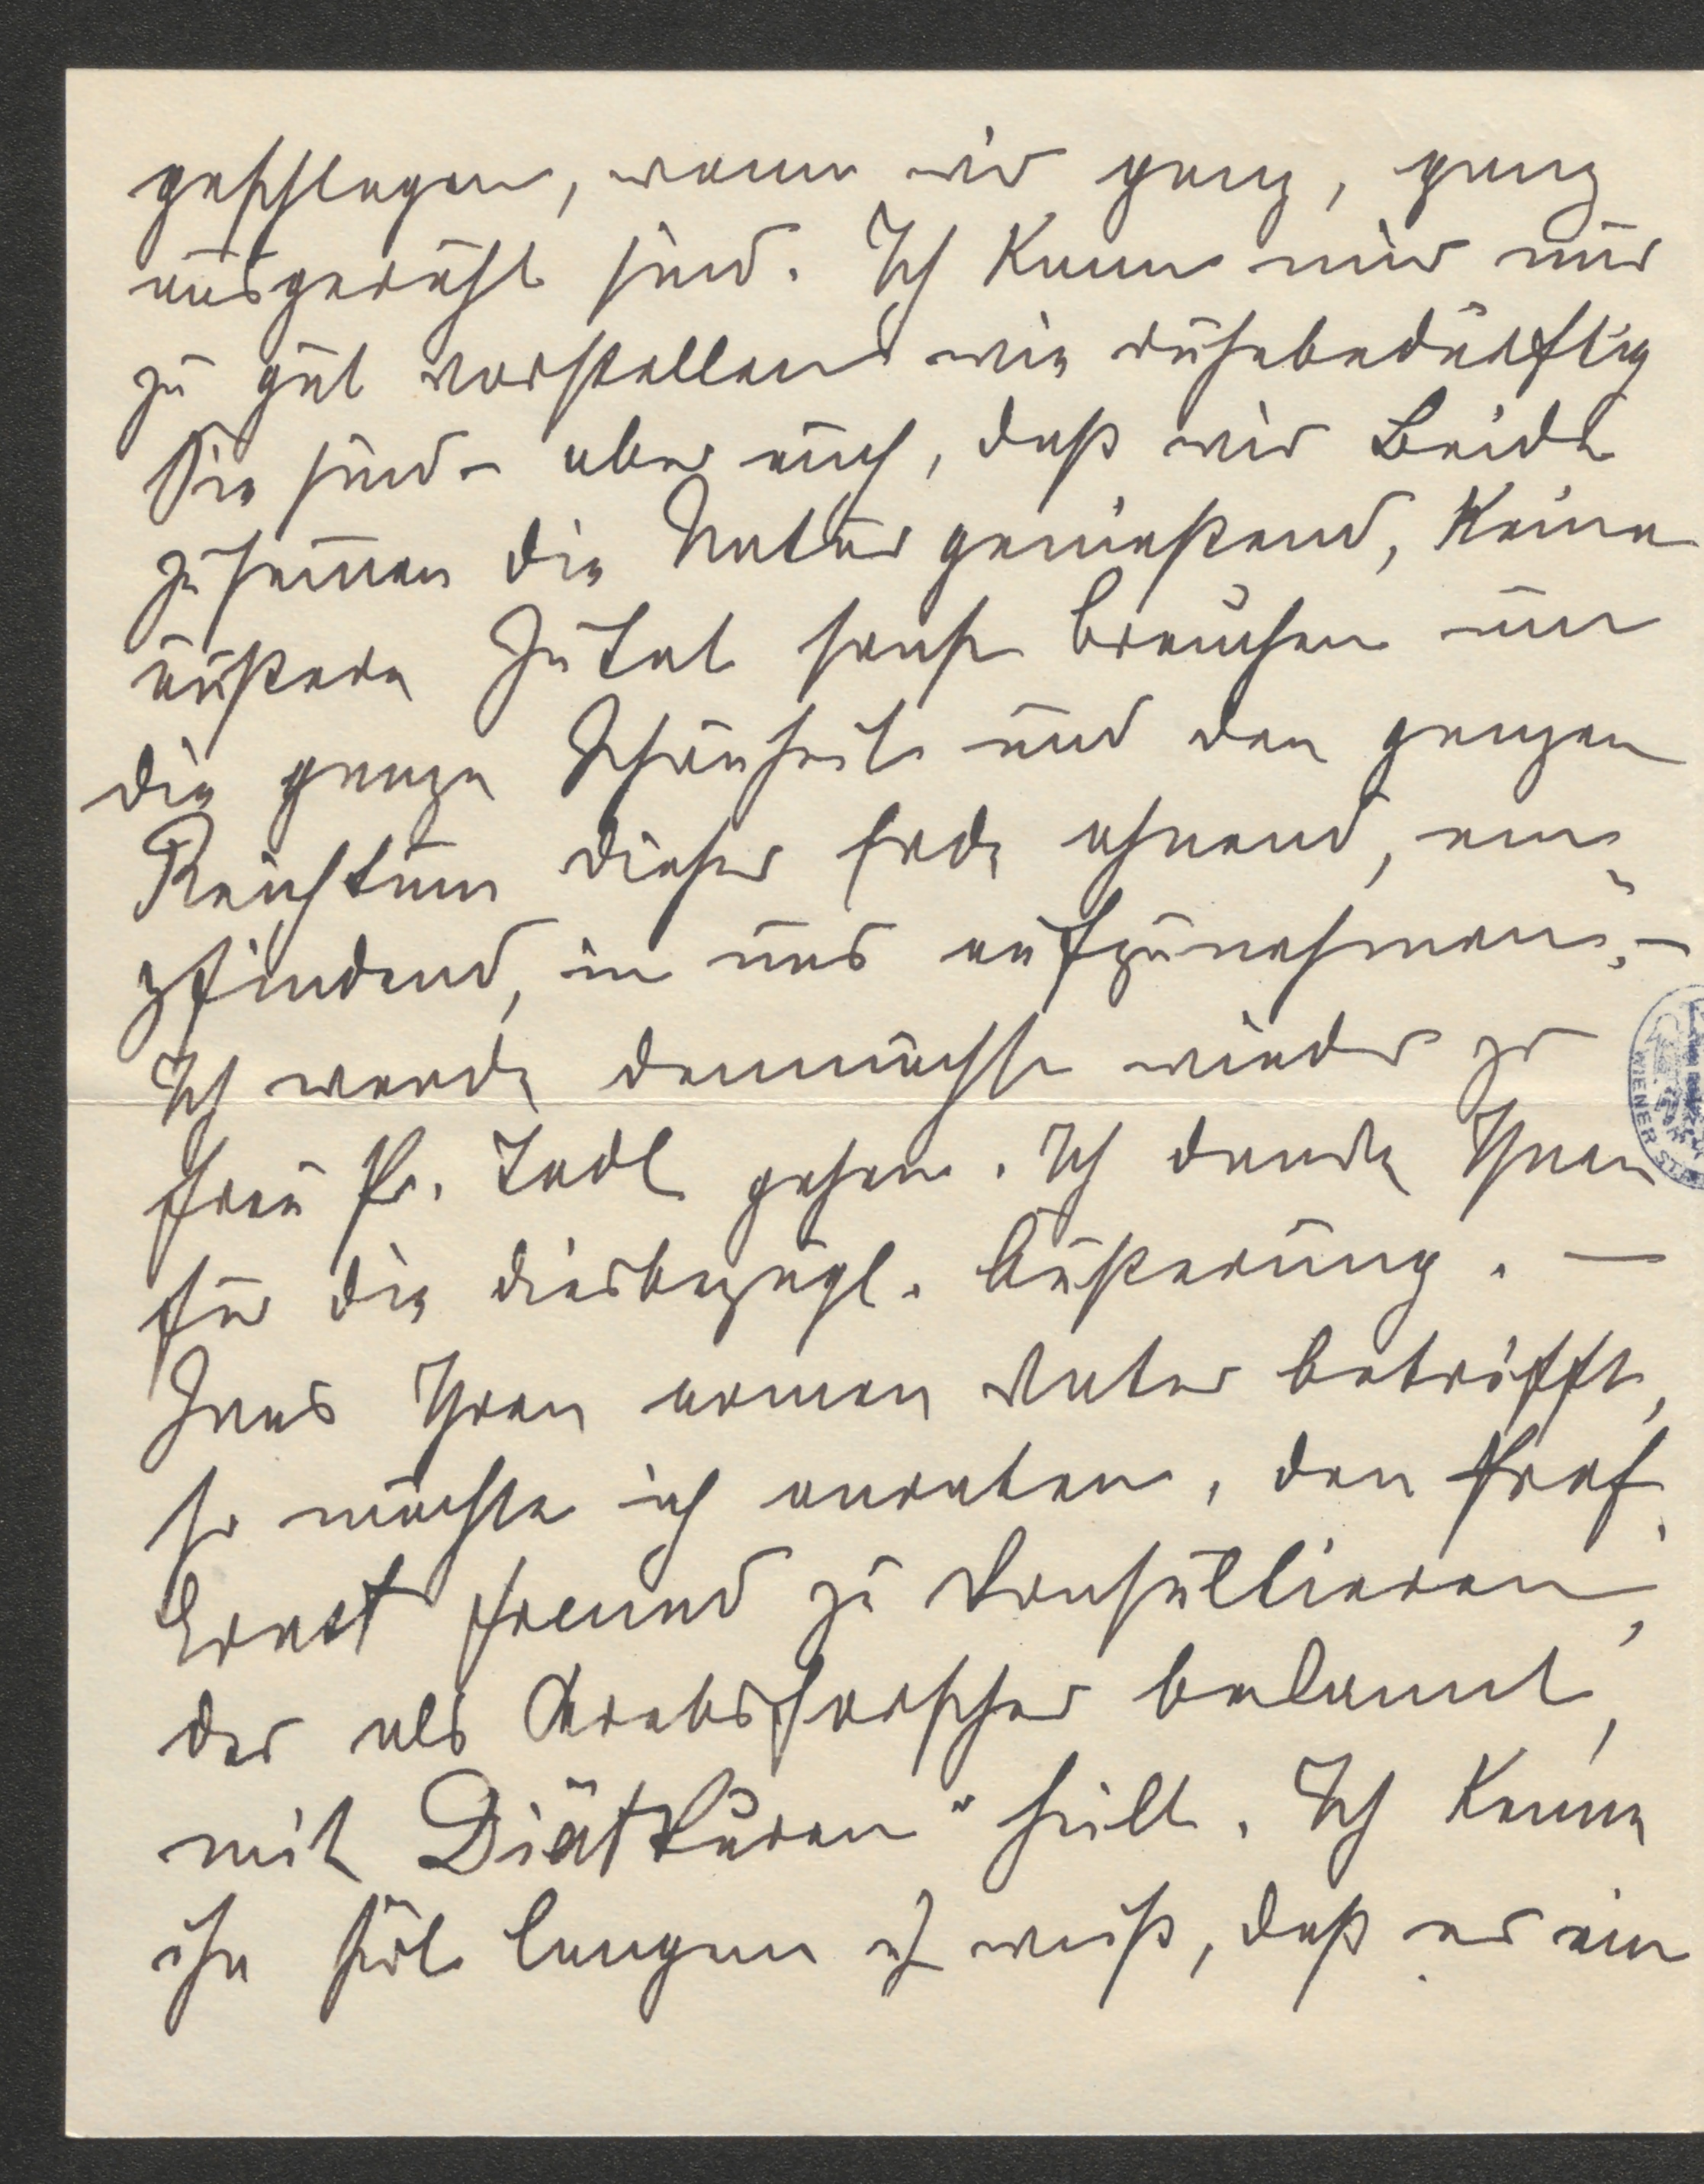 geschlagen, wenn wir ganz, ganz
ausgeruht sind. Ich kann mir nur
zu gut vorstellen wie ruhebedürftig
Sie sind – aber auch, daß wir Beide
zusam̄en die Natur genießend, keine
äußere Zutat sonst brauchen um
die ganze Schönheit und den ganzen
Reichtum dieser Erde ahnend, em-
pfindend, in uns aufzunehmen. –
Ich werde demnächst wieder zu
Frau Pr. Jodl gehen. Ich danke Ihnen
für die diesbezügl. Äußerung. —
Was Ihren armen Vater betrifft,
so möchte ich anraten, den Prof.
Ernst Freund zu konsultieren,
der als Krebsforscher bekannt,
mit Diätkuren" heilt. Ich kenne
ihn seit langem u weiß, daß er ein
WIENER